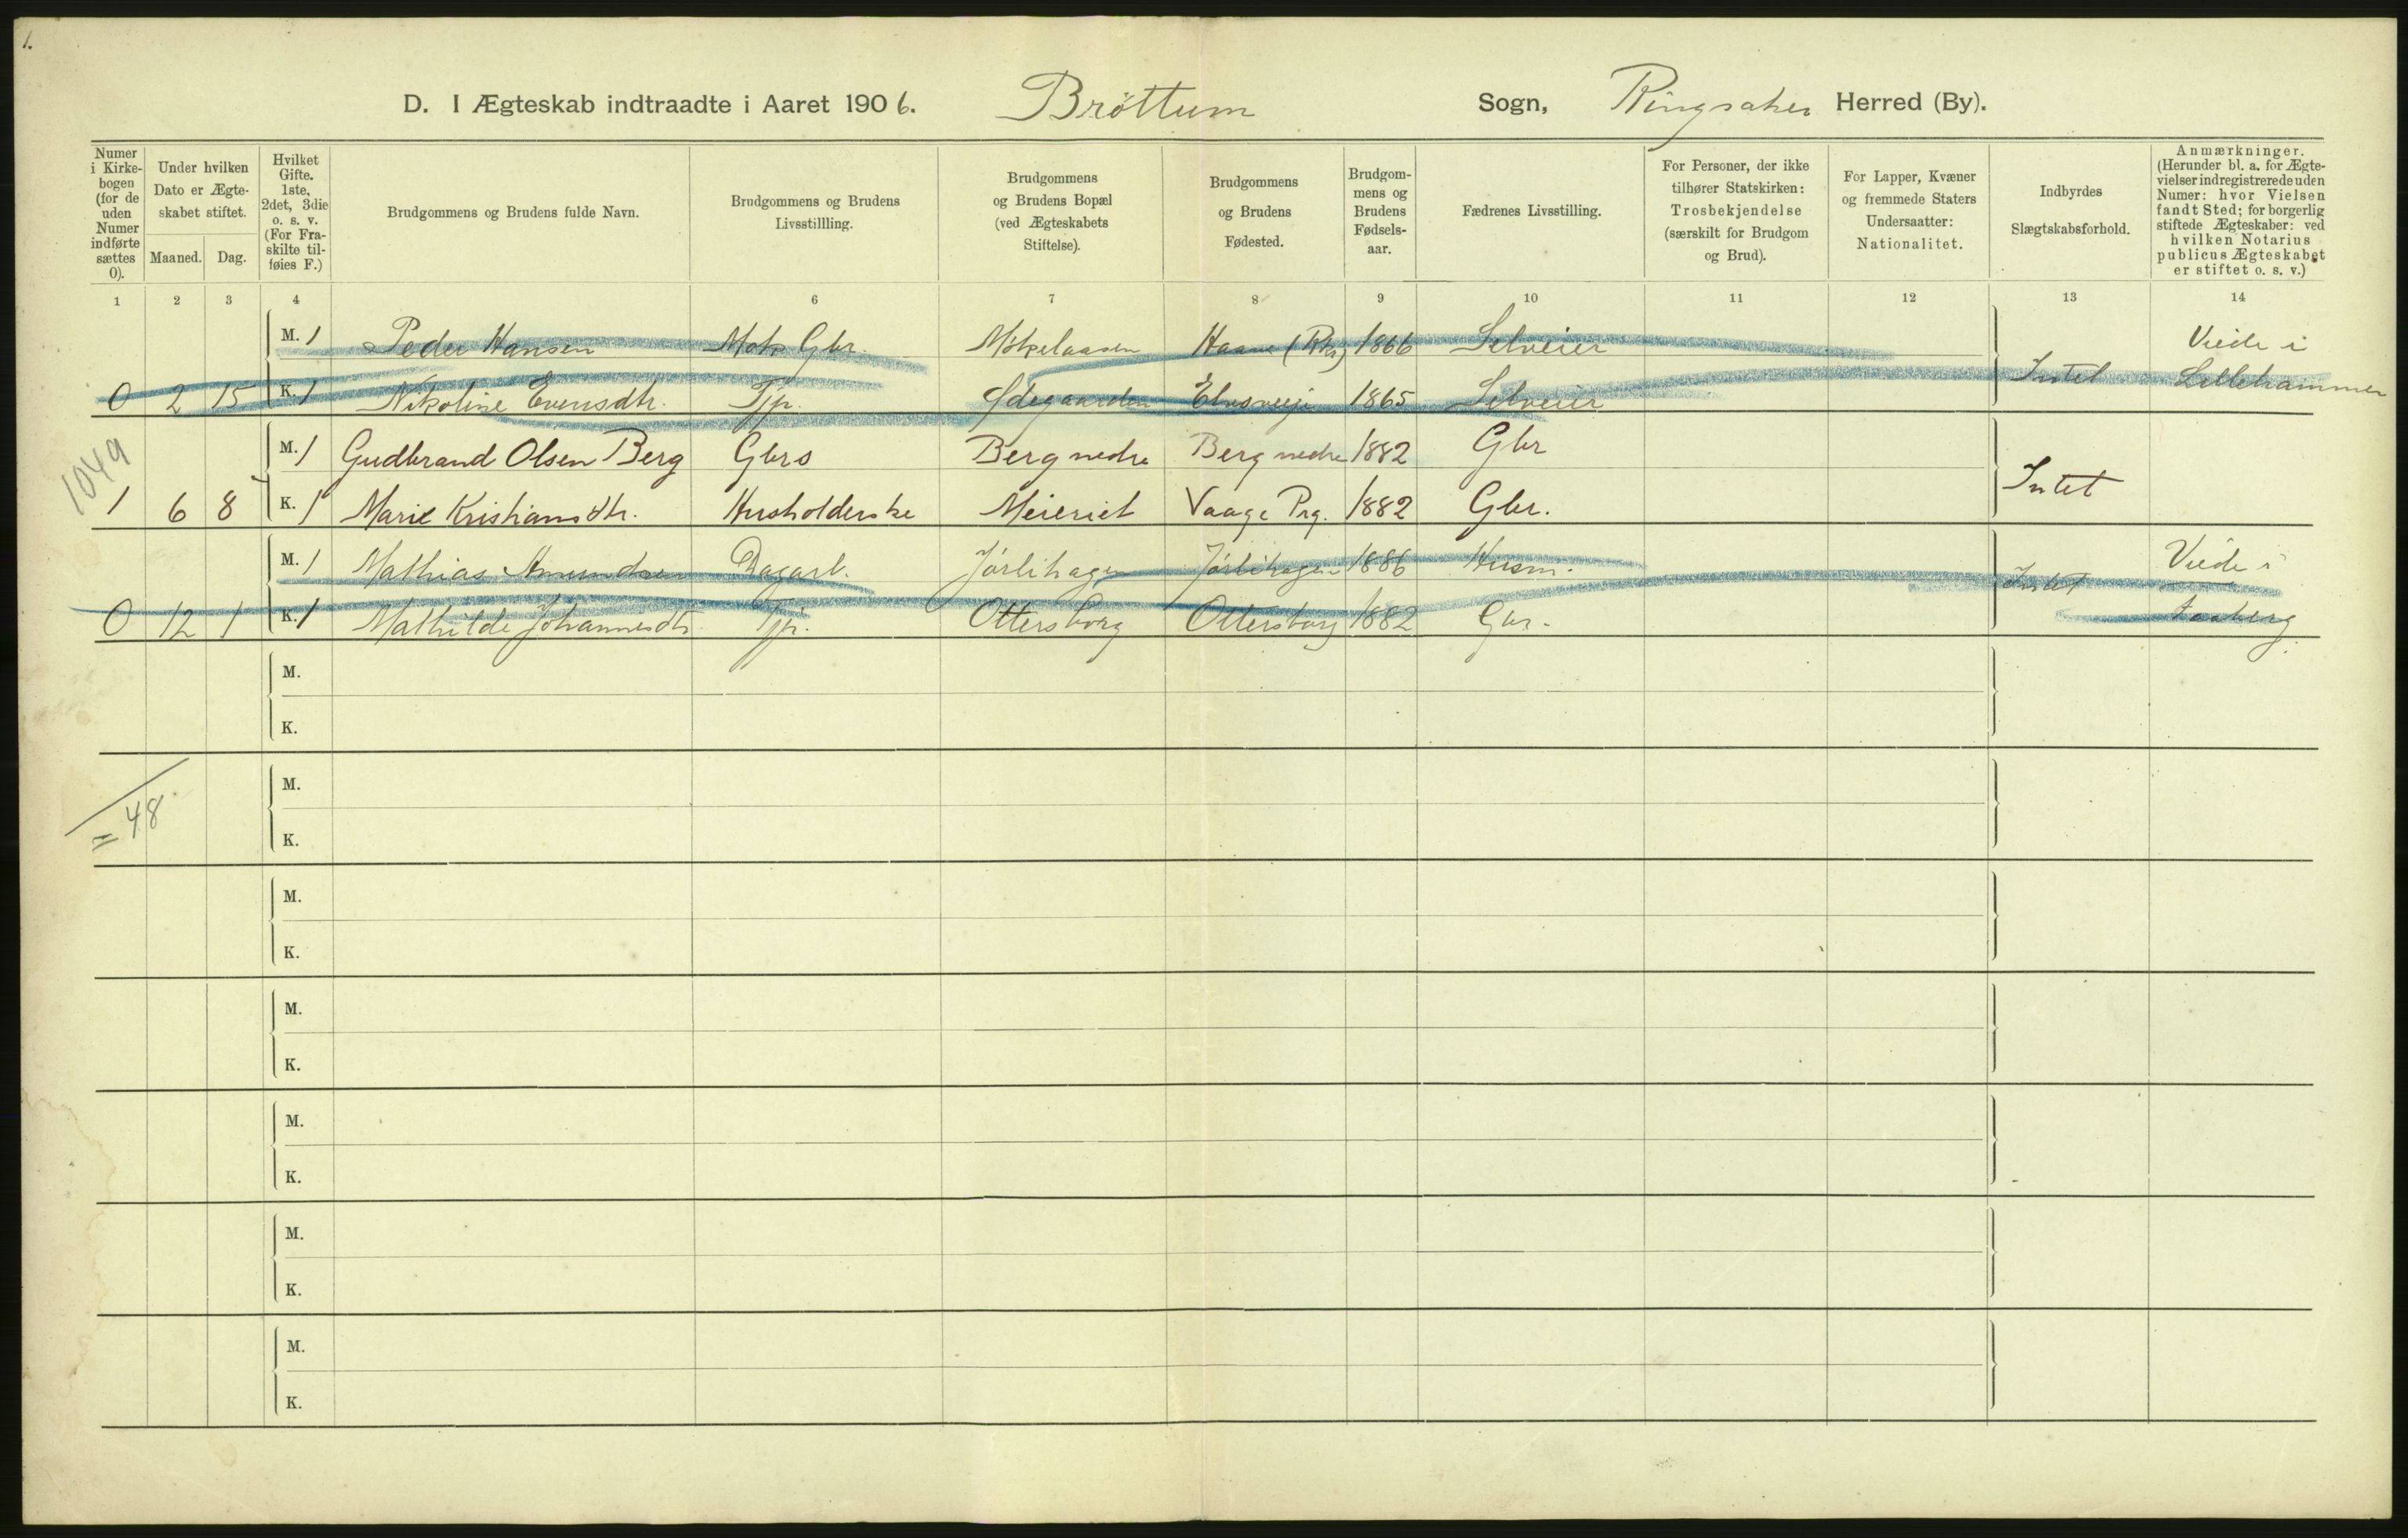 1.
D. I Ægteskab indtraadte i Aaret 1906. Brøttum Sogn, Ringsaker Herred (By).
Numer i Kirkebogen (for de uden Numer indførte sættes 0).
Under hvilken Dato er Ægteskabet stiftet.
Maaned. Dag.
Hvilket Gifte. 1ste, 2det, 3die o. s. v. (For Fraskilte tilføies F.)
Brudgommens og Brudens fulde Navn.
Brudgommens og Brudens Livsstillling.
Brudgommens og Brudens Bopæl (ved Ægteskabets Stiftelse).
Brudgommens og Brudens Fødested.
Brudgommens og Brudens Fødselsaar.
Fædrenes Livsstilling.
For Personer, der ikke tilhører Statskirken: Trosbekjendelse (særskilt for Brudgom og Brud).
For Lapper, Kvæner og fremmede Staters Undersaatter: Nationalitet.
Indbyrdes Slægtskabsforhold.
Anmærkninger. (Herunder bl. a. for Ægtevielser indregistrerede uden Numer: hvor Vielsen fandt Sted; for borgerlig stiftede Ægteskaber: ved hvilken Notarius publicus Ægteskabet er stiftet o. s. v.)
1 2 3 4 6 7 8 9 10 11 12 13 14
M. 1 Peder Hansen Gbr. Mökelaasen 1866 Selveier Viede i
0 2 15 K. 1 Nikoline Evensdtr. Tjp. Ødegaarden 1865 Selveier Intet Lillehammer
1049
M. 1 Gudbrand Olsen Berg Gbrs Berg nedre Berg nedre 1882 Gbr
1 6 8 K. 1 Marie Kristiansdtr. Husholderske Meieriet Vaage Prg. 1882 Gbr. Intet
M. 1 Mathias Amundsen Dagarb. Jörlihagen Jörlihagen 1886 Husm. Viede i
0 12 1 K. 1 Mathilde Johannesdtr. Tjp. Ottersborg Ottersborg 1882 Gbr. Intet Faaberg.
M.
K.
M.
K.
= 48
M.
K.
M.
K.
M.
K.
M.
K.
M.
K.